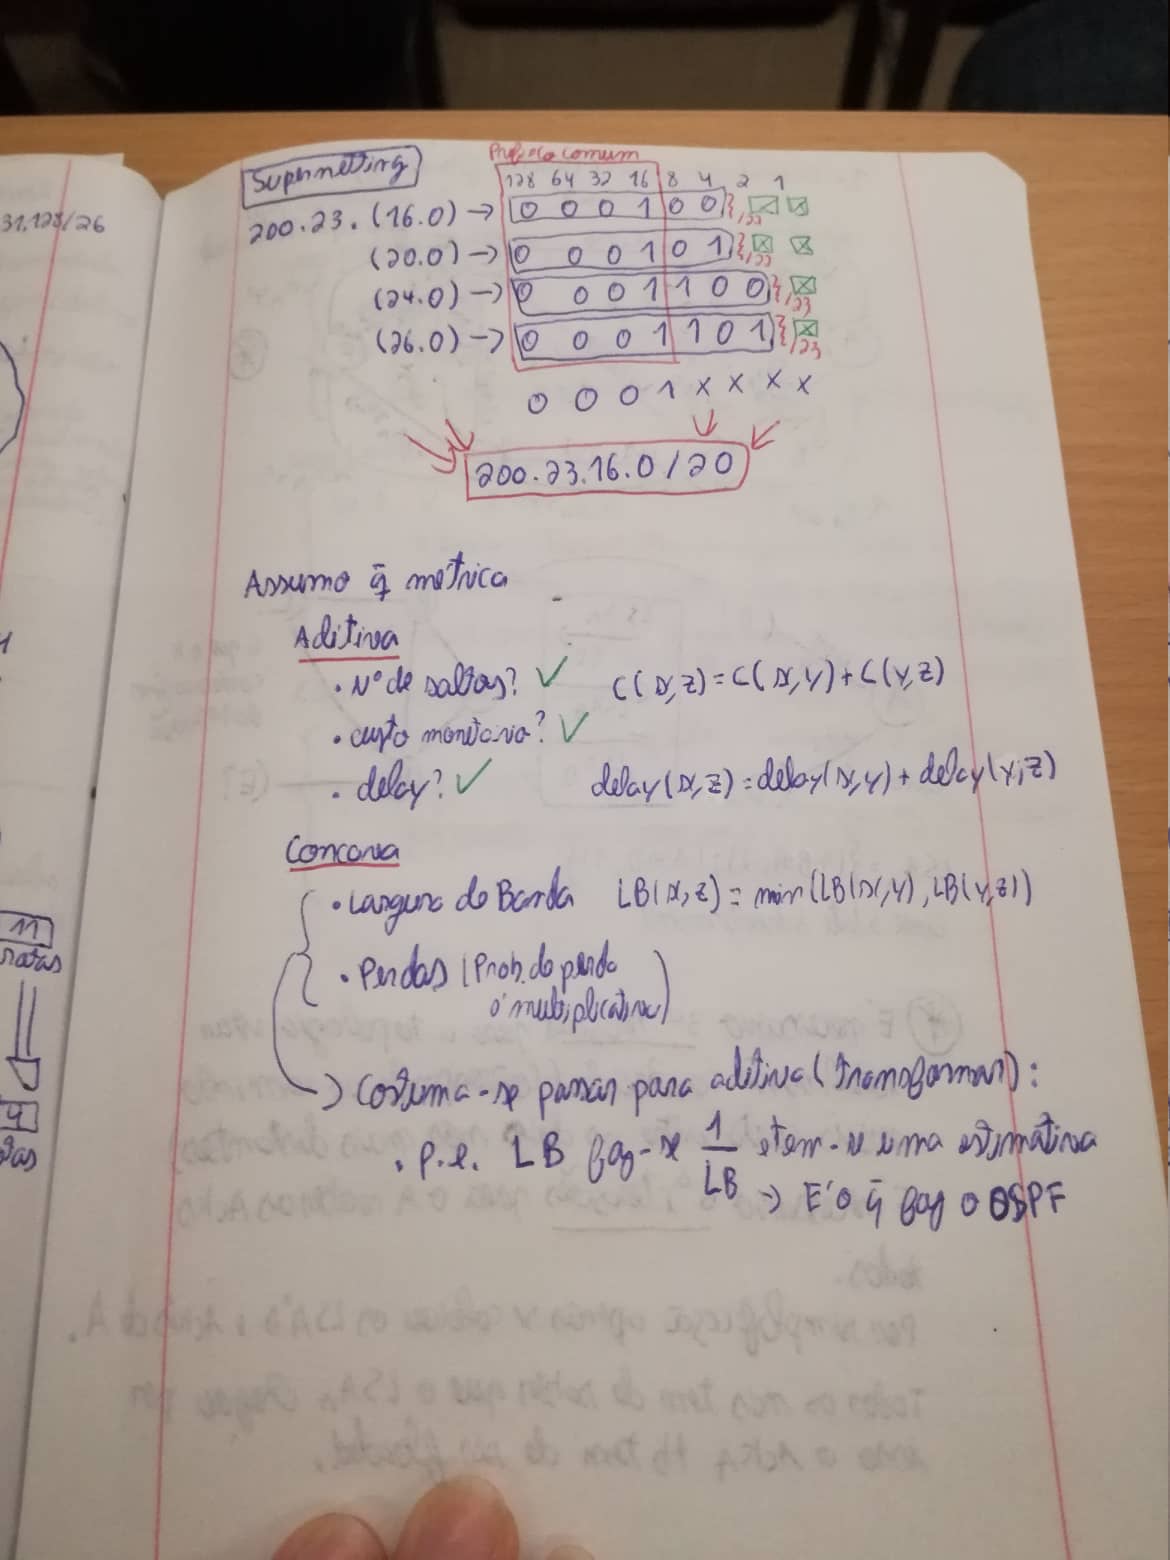 Supernetting
Prefixo comum
128 64 32 16 8 4 2 1
31.128/26
200.23.(16.0) → 0 0 0 1 0 0 /22
(20.0) → 0 0 0 1 0 1 /22
(24.0) → 0 0 0 1 1 0 0 /23
(26.0) → 0 0 0 1 1 0 1 /23
0 0 0 1 x x x x
200.23.16.0/20
Assumo q̄ métrica
Aditiva
• Nº de saltos? ✓ C(x,z) = C(x,y) + C(y,z)
• custo monetário? ✓
• delay? ✓ delay(x,z) = delay(x,y) + delay(y,z)
Concava
• Largura de Banda LB(x,z) = min(LB(x,y), LB(y,z))
• Perdas (Prob. de perda
é multiplicativa)
→ Costuma-se passar para aditiva (transformar):
• p.e. LB faz-se 1/LB e tem-se uma estimativa
→ É o q̄ faz o OSPF
11
rotas
4